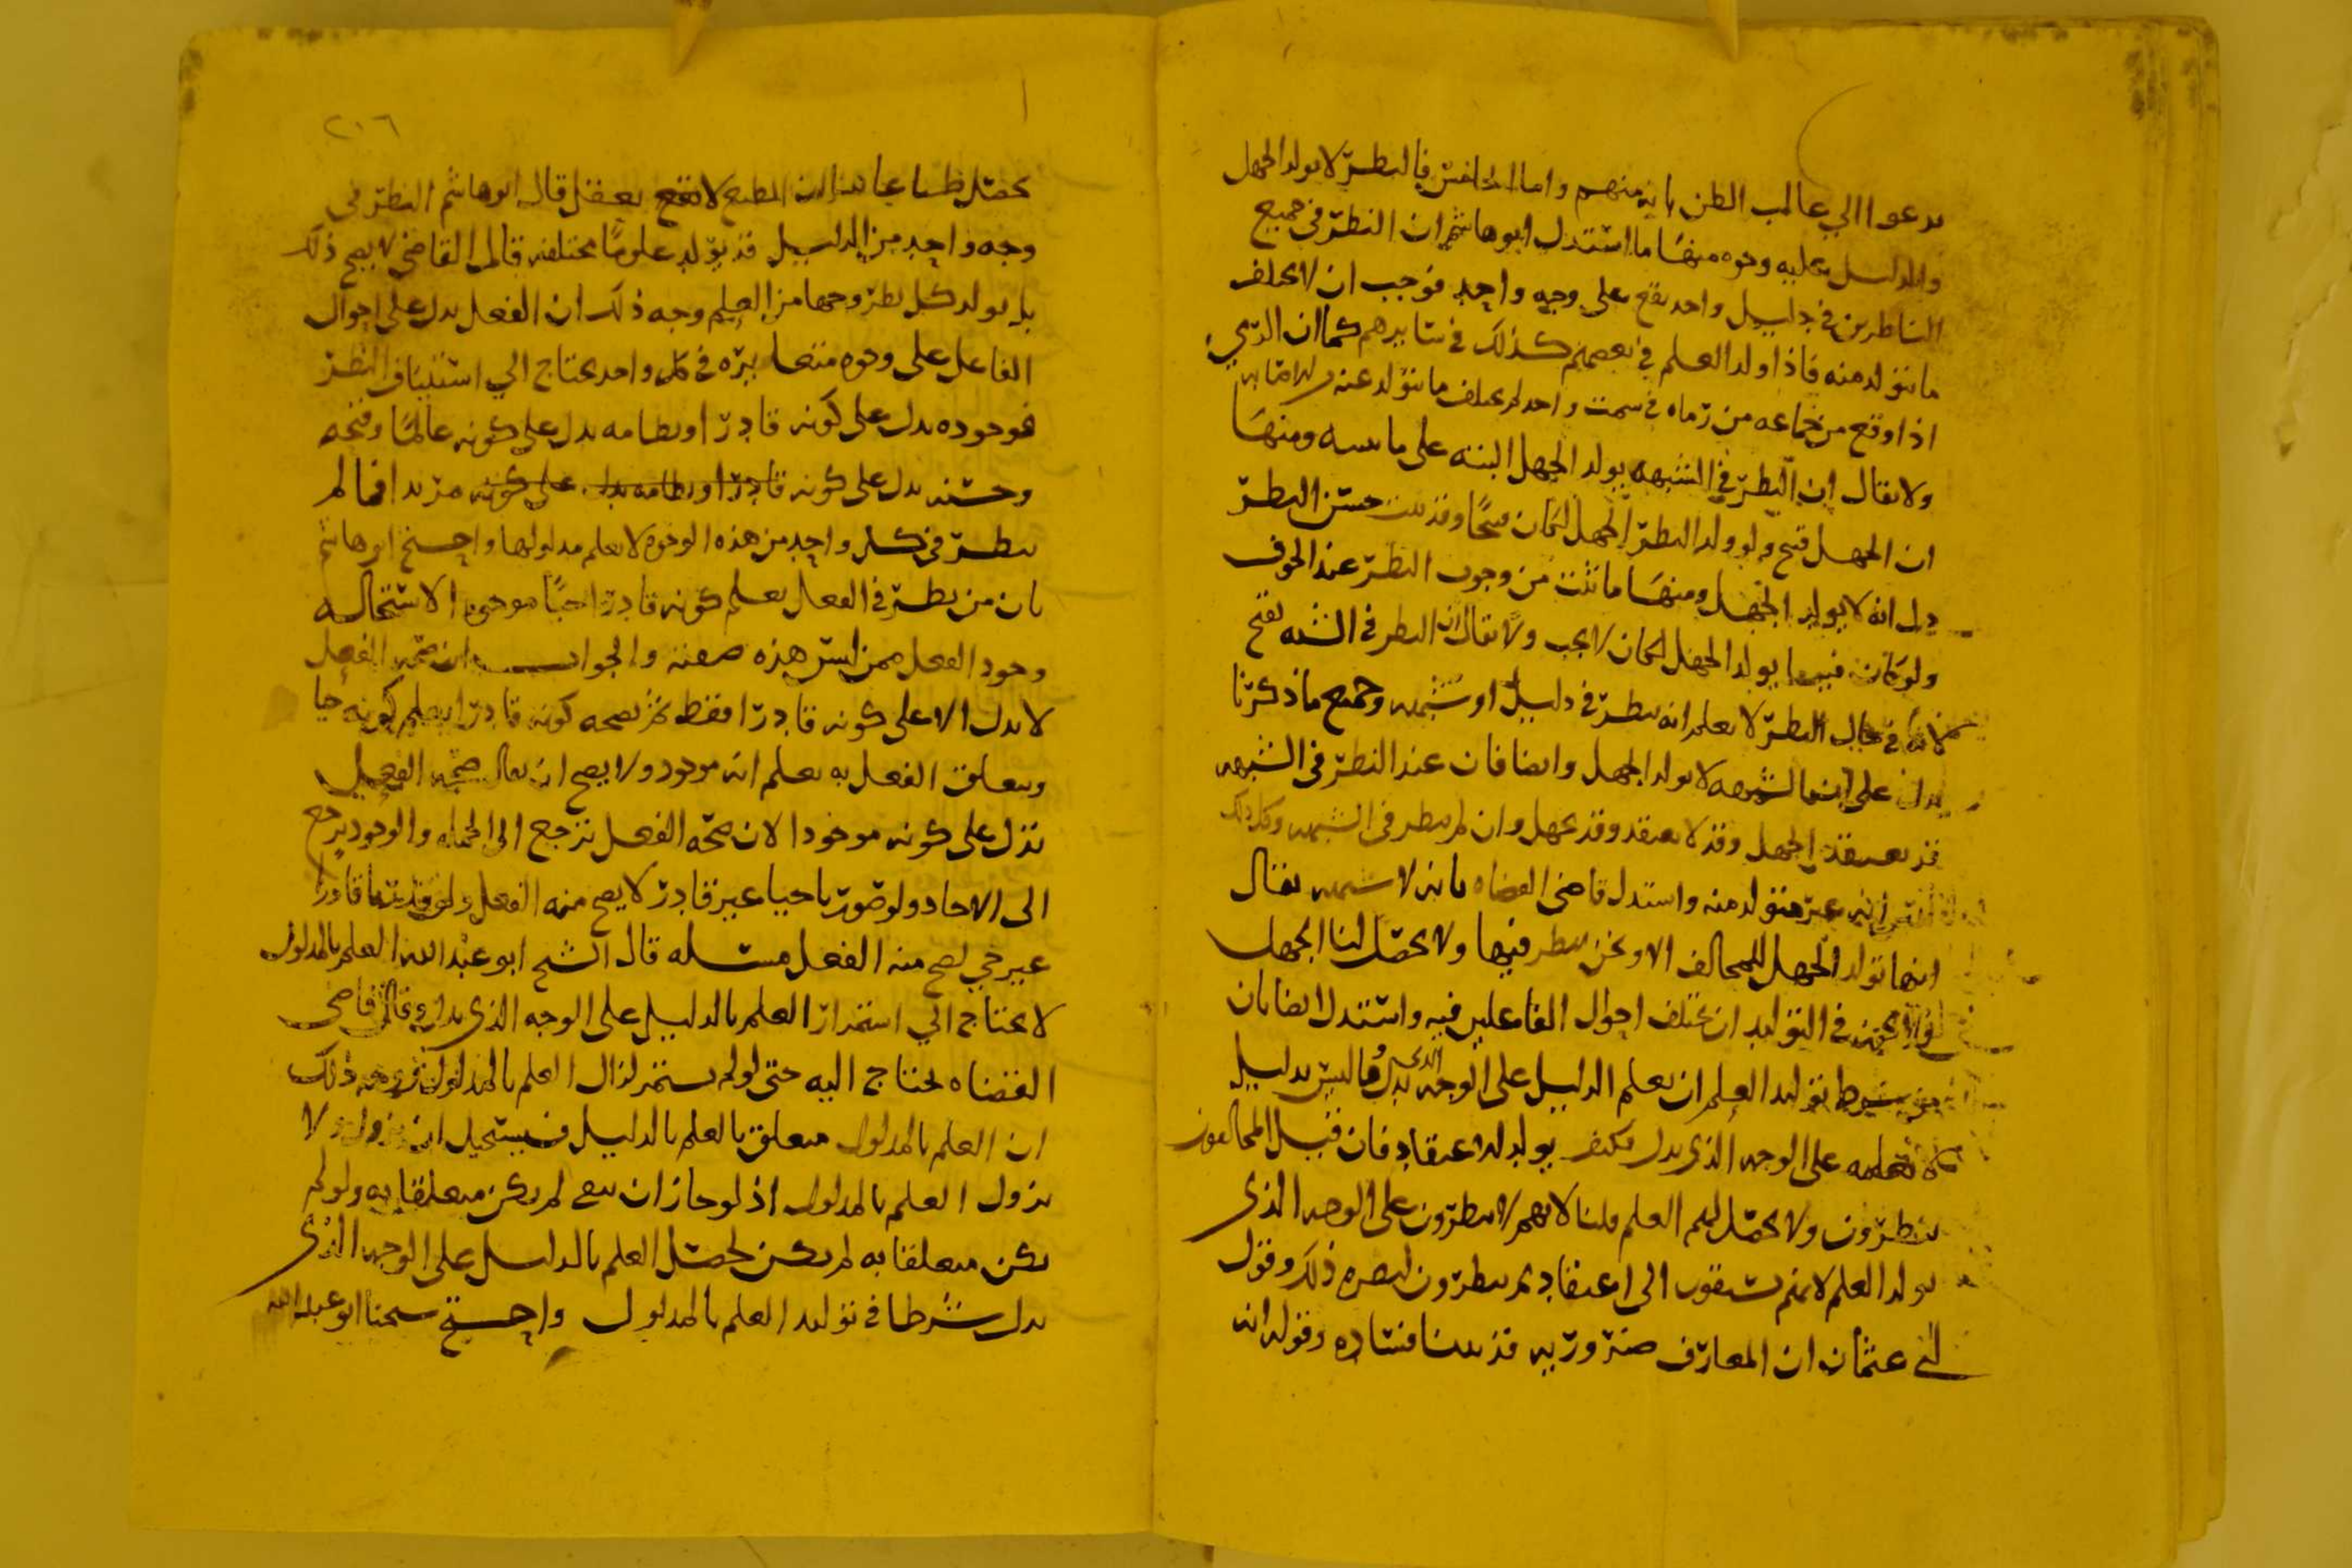 يدعوا الي غالب الظن بانه منهم واما الخامس فالنظر لا يولد الجهل
والدليل عليه وجوه منها ما استدل ابو هاشم ان النظر في جميع
الناظرين في دليل واحد يقع على وجه واحد فوجب ان لا يختلف
ما يتولد منه فاذا ولد العلم في بعضهم كذلك في سايرهم كما ان الرمي
اذا وقع من جماعه من رماه في سمت واحد لم يختلف ما يتولد عنه
ولا يقال ان النظر في الشبهه يولد الجهل البته على ما نبينه ومنها
ان الجهل قبيح ولو ولد النظر الجهل لكان قبيحا وقد ثبت حسن النظر
دل انه لا يولد الجهل ومنها ما ثبت من وجوب النظر عند الخوف
ولو كان فيها ما يولد الجهل لكان لا يجب ولا يقال ان النظر في الشبه يقبح
لانا في حال النظر لا نعلم انه ينظر في دليل او شبهه وجميع ما ذكرنا
يدل على ان الشبهه لا يولد الجهل وايضا فان عند النظر في الشبهه
قد يعتقد الجهل وقد لا يعتقد وقد يجهل وان لم ينظر في الشبهه وكل ذلك
انه غير متولد منه واستدل قاضي القضاه بانه لا شبهه يقال
انها تولد الجهل للمخالف الا ونحن ننظر فيها ولا يحصل لنا الجهل
في التوليد ان يختلف احوال الفاعلين فيه واستدل ايضا بان
من شرط توليد العلم ان يعلم الدليل على الوجه الذي يدل وما ليس بدليل
لا نعلمه على الوجه الذي يدل فكيف يولد الاعتقاد فان قيل المخالفون
ينظرون ولا يحصل لهم العلم قلنا لانهم لا ينظرون على الوجه الذي
يولد العلم لانهم سبقون الى اعتقاد ثم ينظرون لنصره ذلك وقول
ابي عثمان ان المعارف ضروريه قد بينا فساده وقوله انه
٢١٦
يحصل طباعا بينا ان الطبع لا يعقل قال ابو هاشم النظر في
وجه واحد من الدليل قد يولد علوما مختلفه قال القاضي لا يصح ذلك
بل يولد كل نظر وجها من العلم وجه ذلك ان الفعل يدل على احوال
الفاعل على وجوه متغايره في كل واحد يحتاج الي استيناف النظر
فوجوده يدل على كونه قادرا ونظامه يدل على كونه عالما وقبحه
وحسنه يدل على كونه قادرا ونظامه يدل على كونه مريدا فما لم
ينظر في كل واحد من هذه الوجوه لا يعلم مدلولها واحتج ابو هاشم
بان من نظر في الفعل يعلم كونه قادرا حيا موجودا لاستحاله
وجود الفعل ممن ليس هذه صفته والجواب ان صحه الفعل
لا يدل الا على كونه قادرا فقط ثم بصحه كونه قادرا يعلم كونه حيا
وبتعلق الفعل به يعلم انه موجود ولا يصح ان يقال صحه الفعل
تدل على كونه موجودا لان صحه الفعل ترجع الى الجمله والوجود يرجع
الى الاحاد ولو تصورنا حيا غير قادر لا يصح منه الفعل ولو قدرنا قادرا
غير حي لصح منه الفعل مسئله قال الشيخ ابو عبد الله العلم بالمدلول
لا يحتاج الي استمرار العلم بالدليل على الوجه الذي يدل وقال قاضي
القضاه يحتاج اليه حتى لو لم يستمر لزال العلم بالمدلول وجه ذلك
ان العلم بالمدلول متعلق بالعلم بالدليل فيستحيل ان يزول ولا
يزول العلم بالمدلول اذ لو جاز ان يبقى لم يكن متعلقا به ولو لم
يكن متعلقا به لم يكن لحصل العلم بالدليل على الوجه الذي
يدل شرطا في توليد العلم بالمدلول واحتج شيخنا ابو عبد الله